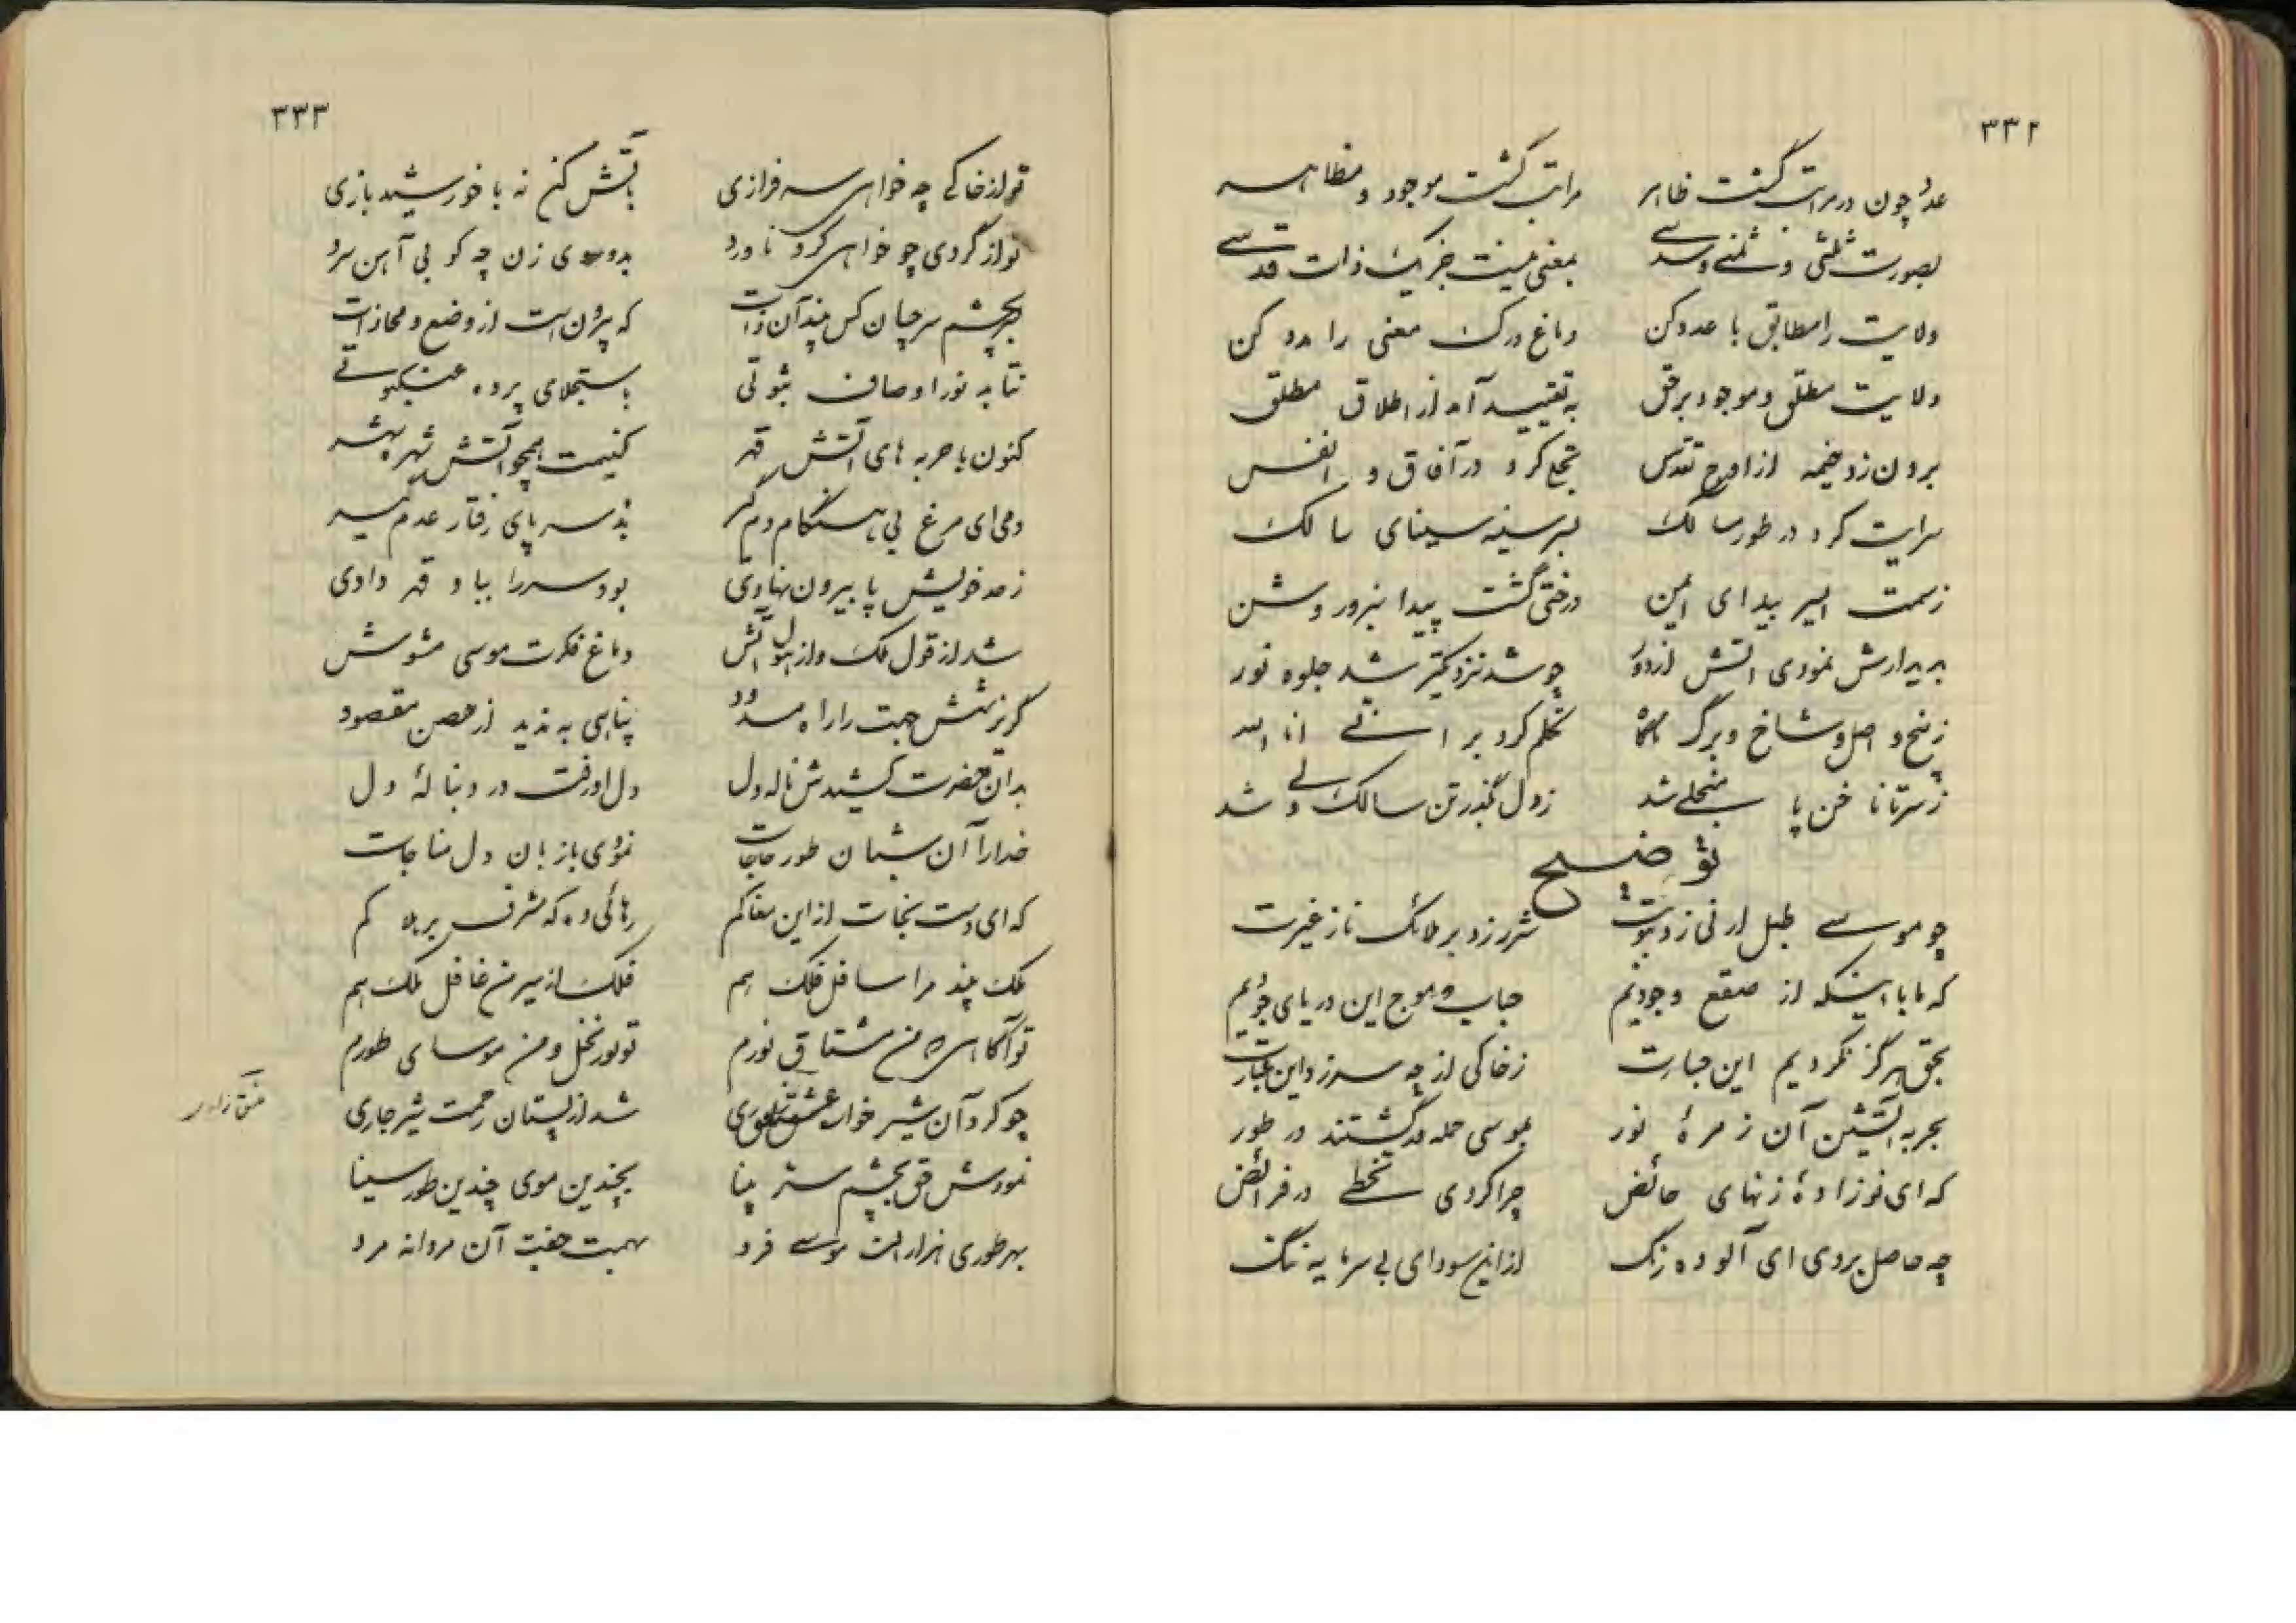 ۳۳۲
عدد چون در مراتب گشت ظاهر مراتب گشت موجود و مظاهر
بصورت ثلثی و ثمنی و سدسی بمعنی نیست جز یک ذات قدسی
ولایت را مطابق با عدد کن دماغ درک معنی را مدد کن
ولایت مطلق و موجود بر حق به تقیید آمد از اطلاق مطلق
برون زد خیمه از اوج تقدس تجلی کرد در آفاق و انفس
سرایت کرد در طور سالک بر سینه سینای سالک
ز سمت ایسر بیدای ایمن درختی گشت پیدا نیز و روشن
به دیدارش نمودی آتش از دور چو شد نزدیکتر شد جلوه نور
ز بیخ و اصل و شاخ و برگ تکلم کرد بر انی انا الله
ز سر تا ناخن پا منجلی شد ز دل بگذر تن سالک ولی شد
توضیح
چو موسی طبل ارنی زد شرر زد بر ملائک نار غیرت
که ما با اینکه از صقع وجودیم حباب و موج این دریای جودیم
بحق هرگز نکردیم این جسارت ز خاکی از چه سرزد این عبارت
بحربه آتشین آن زمرهٔ نور بموسی حمله ور گشتند در طور
که ای نوزادهٔ زنهای حائض چرا کردی تخطی در فرائض
چه حاصل بردی ای آلوده رنگ از این سودای بی سرمایه ننگ
۳۳۳
تو از خاکی چه خواهی سرفرازی بآتش کن نه با خورشید بازی
تو از گردی چو خواهی کرد ناورد بدوسوی زن چه کوبی آهن سرد
بچشم سر چسان کس بیند آن ذات که بیرون است از وضع و محاذات
نتابد نور اوصاف ثبوتی باستجلای پرده عنکبوتی
کنون با حربه های آتش قهر کنیمت همچو آتش شهر
دمی ای مرغ بی هنگام دم گیر پای رفتار عدم گیر
ز حد خویش پا بیرون نهادی بود سر را بباد قهر دادی
شد از قول ملک و از هول آتش دماغ فکرت موسی مشوش
گریزشش جهت را راه مسدود پناهی به ندید از حصن مقصود
بدان حضرت کشیدش ناله دل دل او رفت در دنبالهٔ دل
خدا را آن شبان طور حاجات نمودی با زبان دل مناجات
که ای دست نجات از این مغاکم رهائی ده که مشرف بر هلاکم
ملک بیند مرا سافل فلک هم فلک از سر من غافل ملک هم
تو آگاهی که من مشتاق نورم تو نور نخل و من موسای طورم
چو کرد آن شیر خوار عشق شد از پستان رحمت شیر جاری
نمودش حق بچشم سر بینا بچندین موی چندین طور سینا
بهر طوری هزار الف موسی فرد بهمت جفت آن مردانه مرد